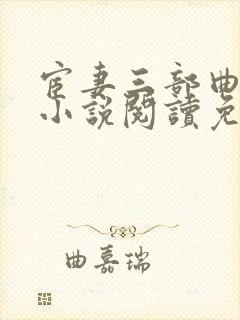 宦妻三部曲
小說閱讀免
曲嘉瑞